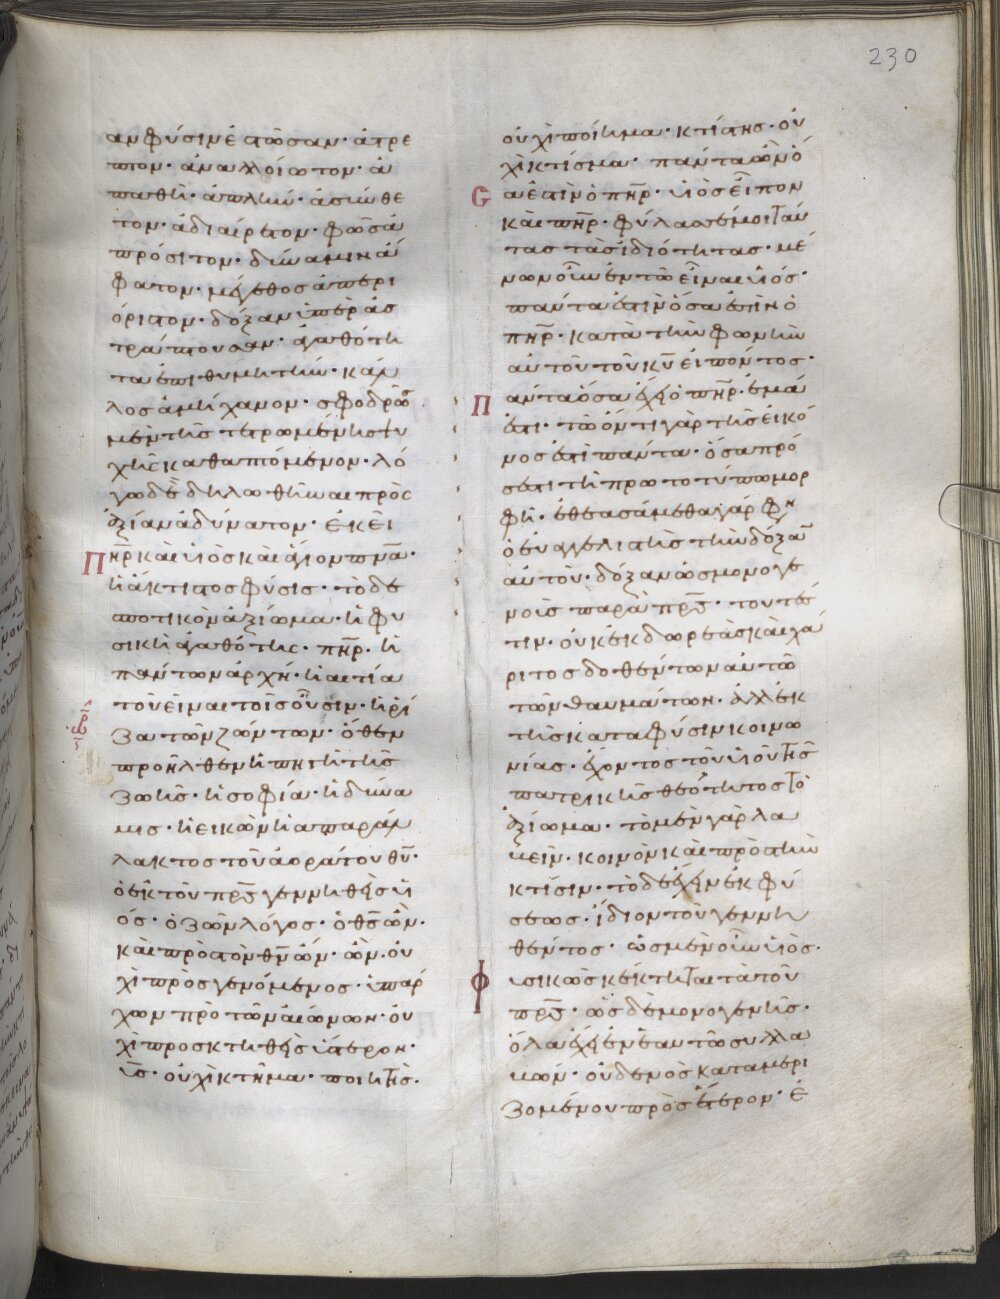 230
αν φύσιν ἑστῶσαν· ἄτρε
πτον· ἀναλλοίωτον· ἀ
παθῆ· ἁπλῆν· ἀσύνθε
τον· ἀδιαίρετον· φῶς ἀ
πρόσιτον· δύναμιν ἄ
φατον· μέγεθος ἀπερι
όριστον· δόξαν ὑπερασ
τράπτουσαν· ἀγαθότη
τα ἐπιθυμητήν· κάλ
λος ἀμήχανον· σφοδρῶς
μὲν τῆς τετρωμένης ψυ
χῆς καθαπτόμενον· λό
γω δὲ δηλωθῆναι πρὸς
ἀξίαν ἀδύνατον· ἐκεῖ
πηρ καὶ υἱὸς καὶ ἅγιον πνα·
ἡ ἄκτιστος φύσις· τὸ δεσ
ποτικὸν ἀξίωμα· ἡ φυ
σικὴ ἀγαθότης· πηρ· ἡ
πάντων ἀρχή· ἡ αἰτία
τοῦ εἶναι τοῖς οὖσιν· ἡ ῥί
ζα τῶν ζώντων· ὅθεν
προῆλθεν ἡ πηγὴ τῆς
ζωῆς· ἡ σοφία· ἡ δύνα
μις· ἡ εἰκὼν ἡ ἀπαράλ
λακτος τοῦ ἀοράτου θυ·
ὁ ἐκ τοῦ πρς γεννηθεὶς υἱ
ός· ὁ ζῶν λόγος· ὁ θς ὤν·
καὶ πρὸς τὸν θν ὤν· ὤν· οὐ
χὶ προσγενόμενος· ὑπάρ
χων πρὸ τῶν αἰώνων· οὐ
χὶ προσκτηθεὶς ὕστερον·
υς· οὐχὶ κτῆμα· ποιητὴς·
οὐχὶ ποίημα· κτίστης· οὐ
χὶ κτίσμα· πάντα ὢν ὅ
σα ἐστὶν ὁ πηρ· υἱὸς εἶπον
καὶ πηρ· φύλασσέ μοι ταύ
τας τὰς ἰδιότητας· μέ
νων οὖν ἐν τῶ εἶναι υἱός·
πάντα ἐστὶν ὅσα ἐστὶν ὁ
πηρ· κατὰ τὴν φωνὴν
αὐτοῦ τοῦ κυ εἰπόντος·
πάντα ὅσα ἔχει ὁ πηρ· ἐμά
ἐστι· τῶ ὄντι γὰρ τῆς εἰκό
νος ἐστὶ πάντα· ὅσα πρό
σεστι τῆ πρωτοτύπω μορ
φῆ· ἐθεασάμεθα γάρ φη
ὁ εὐαγγελιστὴς τὴν δόξαν
αὐτοῦ· δόξαν ὡς μονογε
νοῦς παρὰ πρς· τουτέσ
τιν· οὐκ ἐκ δωρεᾶς καὶ χά
ριτος δοθέντων αὐτῶ
τῶν θαυμάτων· ἀλλ' ἐκ
τῆς κατὰ φύσιν κοινω
νίας· ἔχοντος τοῦ υἱοῦ τῆς
πατρικῆς θεότητος τὸ
ἀξίωμα· τὸ μὲν γὰρ λα
βεῖν· κοινὸν καὶ πρὸς τὴν
κτίσιν· τὸ δὲ ἔχειν ἐκ φύ
σεως· ἴδιον τοῦ γεννη
θέντος· ὡς μὲν οὖν υἱὸς·
φυσικῶς κέκτηται τὰ τοῦ
πρς· ὡς δὲ μονογενὴς·
ὅλα ἔχει ἐν ἑαυτῶ συλλα
βών· οὐδενὸς καταμερι
ζομένου πρὸς ἕτερον· ἐ